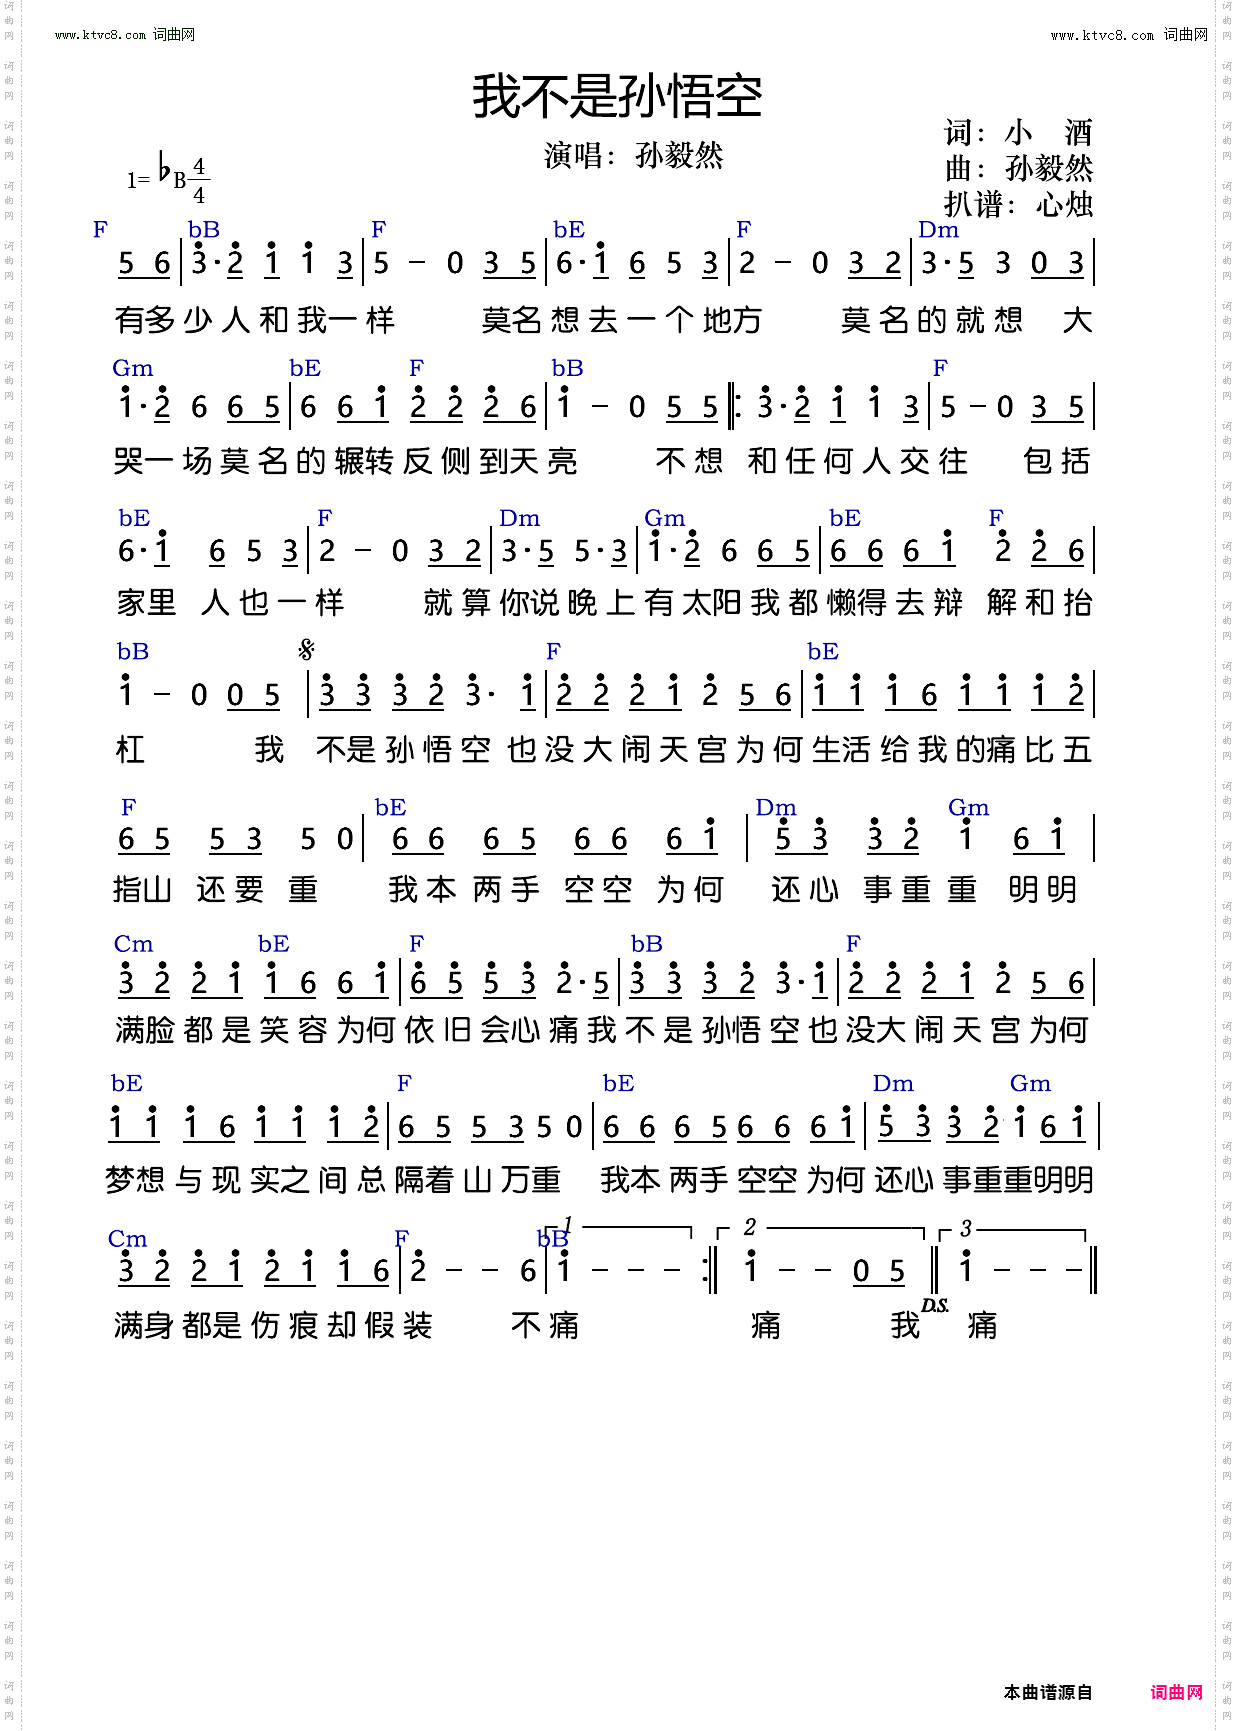 www.ktvc8.com 词曲网
www.ktvc8.com 词曲网
我不是孙悟空
演唱：孙毅然
词：小 酒
曲：孙毅然
扒谱：心烛
1=♭B 4/4
F bB F bE F Dm
5 6 | 3·2 1 1 3 | 5 – 0 3 5 | 6·1 6 5 3 | 2 – 0 3 2 | 3·5 3 0 3 |
有多少人和我一样 莫名想去一个地方 莫名的就想 大
Gm bE F bB F
1·2 6 6 5 | 6 6 1 2 2 2 6 | 1 – 0 5 5 ‖: 3·2 1 1 3 | 5 – 0 3 5 |
哭一场莫名的辗转反侧到天亮 不想 和任何人交往 包括
bE F Dm Gm bE F
6·1 6 5 3 | 2 – 0 3 2 | 3·5 5·3 | 1·2 6 6 5 | 6 6 6 1 2 2 6
家里 人也一样 就算你说晚上有太阳我都懒得去辩 解和抬
bB 𝄋 F bE
1 – 0 0 5 | 3 3 3 2 3· 1 | 2 2 2 1 2 5 6 | 1 1 1 6 1 1 1 2 |
杠 我 不是孙悟空 也没大闹天宫为何生活给我的痛比五
F bE Dm Gm
6 5 5 3 5 0 | 6 6 6 5 6 6 6 1 | 5 3 3 2 1 6 1 |
指山 还要 重 我本 两手 空空 为何 还心 事重重 明明
Cm bE F bB F
3 2 2 1 1 6 6 1 | 6 5 5 3 2·5 | 3 3 3 2 3·1 | 2 2 2 1 2 5 6 |
满脸都是笑容为何依旧会心痛我不是孙悟空也没大闹天宫为何
bE F bE Dm Gm
1 1 1 6 1 1 1 2 | 6 5 5 3 5 0 | 6 6 6 5 6 6 6 1 | 5 3 3 2 1 6 1 |
梦想与现实之间总隔着山万重 我本两手空空为何还心事重重明明
Cm F bB 1 2 3
3 2 2 1 2 1 1 6 | 2 – – 6 | 1 – – – :‖ 1 – – 0 5 ‖ 1 – – – ‖
D.S.
满身都是伤痕却假装 不痛 痛 我 痛
本曲谱源自 词曲网